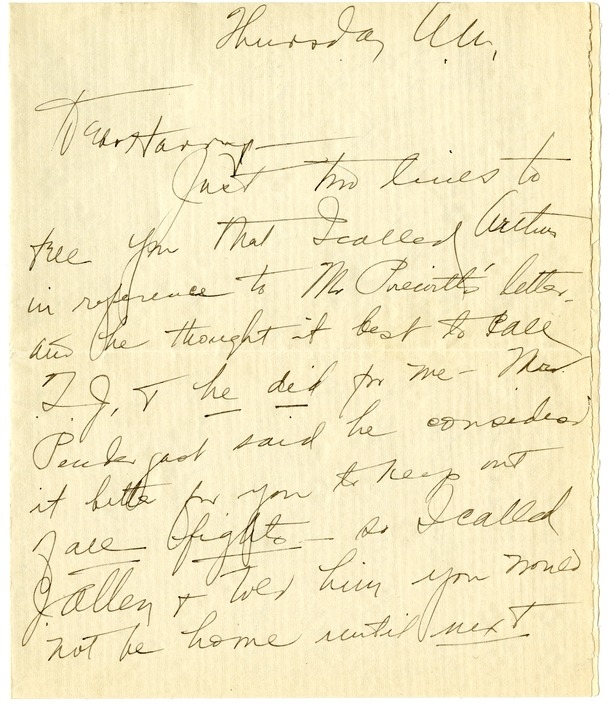 Thursday A.M.
Dear Harry —
Just two lines to
tell you that I called Arthur
in reference to Mr Prewitt's letter,
and he thought it best to call
T.J. & he did for me — Mr.
Pendergast said he considered
it better for you to keep out
of all fights — so I called
Allen & told him you would
not be home until next